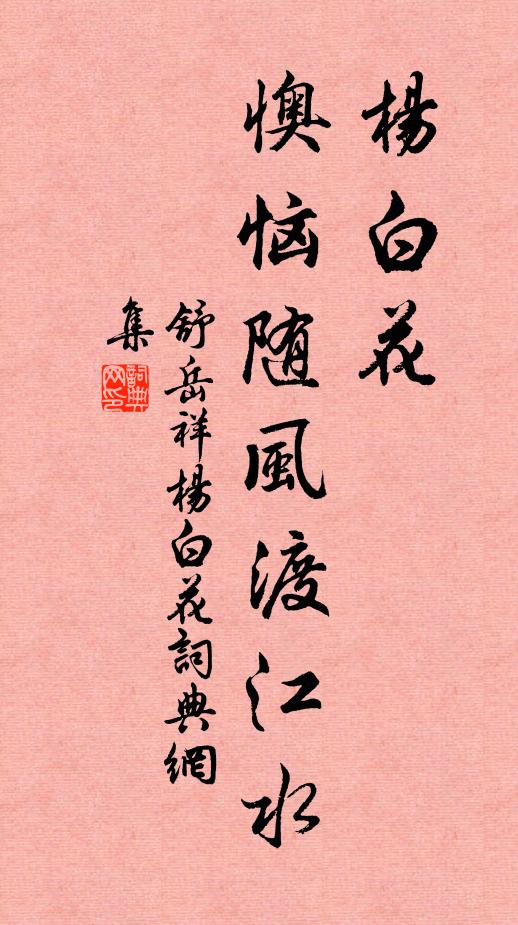 楊白花
懊恼随風渡江水
舒岳祥楊白花詞典網
集
詞典
网印